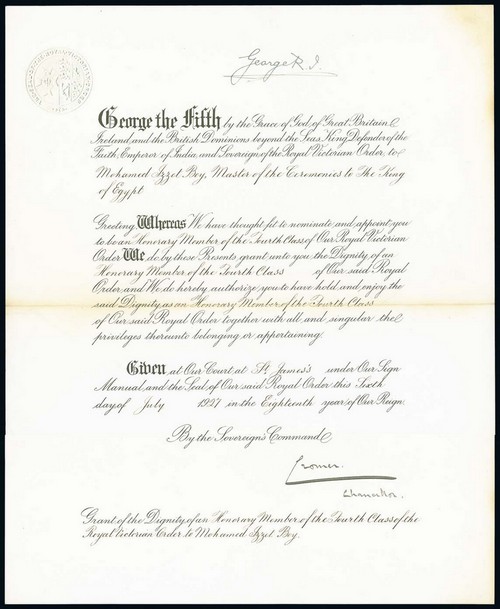 George R.I.
George the Fifth by the Grace of God, of Great Britain
Ireland, and the British Dominions beyond the Seas King, Defender of the
Faith, Emperor of India, and Sovereign of the Royal Victorian Order, to
Mohamed Izzet Bey, Master of the Ceremonies to The King
of Egypt
Greeting, Whereas We have thought fit to nominate and appoint you
to be an Honorary Member of the Fourth Class of Our Royal Victorian
Order We do by these Presents grant unto you the Dignity of an
Honorary Member of the Fourth Class of Our said Royal
Order and We do hereby authorize you to have hold, and enjoy the
said Dignity as an Honorary Member of the Fourth Class
of Our said Royal Order together with all and singular the
privileges thereunto belonging or appertaining.
Given at Our Court at St. James's under Our Sign
Manual and the Seal of Our said Royal Order this Sixth
day of July 1927 in the Eighteenth year of Our Reign.
By the Sovereign's Command
Cromer.
Chancellor.
Grant of the Dignity of an Honorary Member of the Fourth Class of the
Royal Victorian Order to Mohamed Izzet Bey.